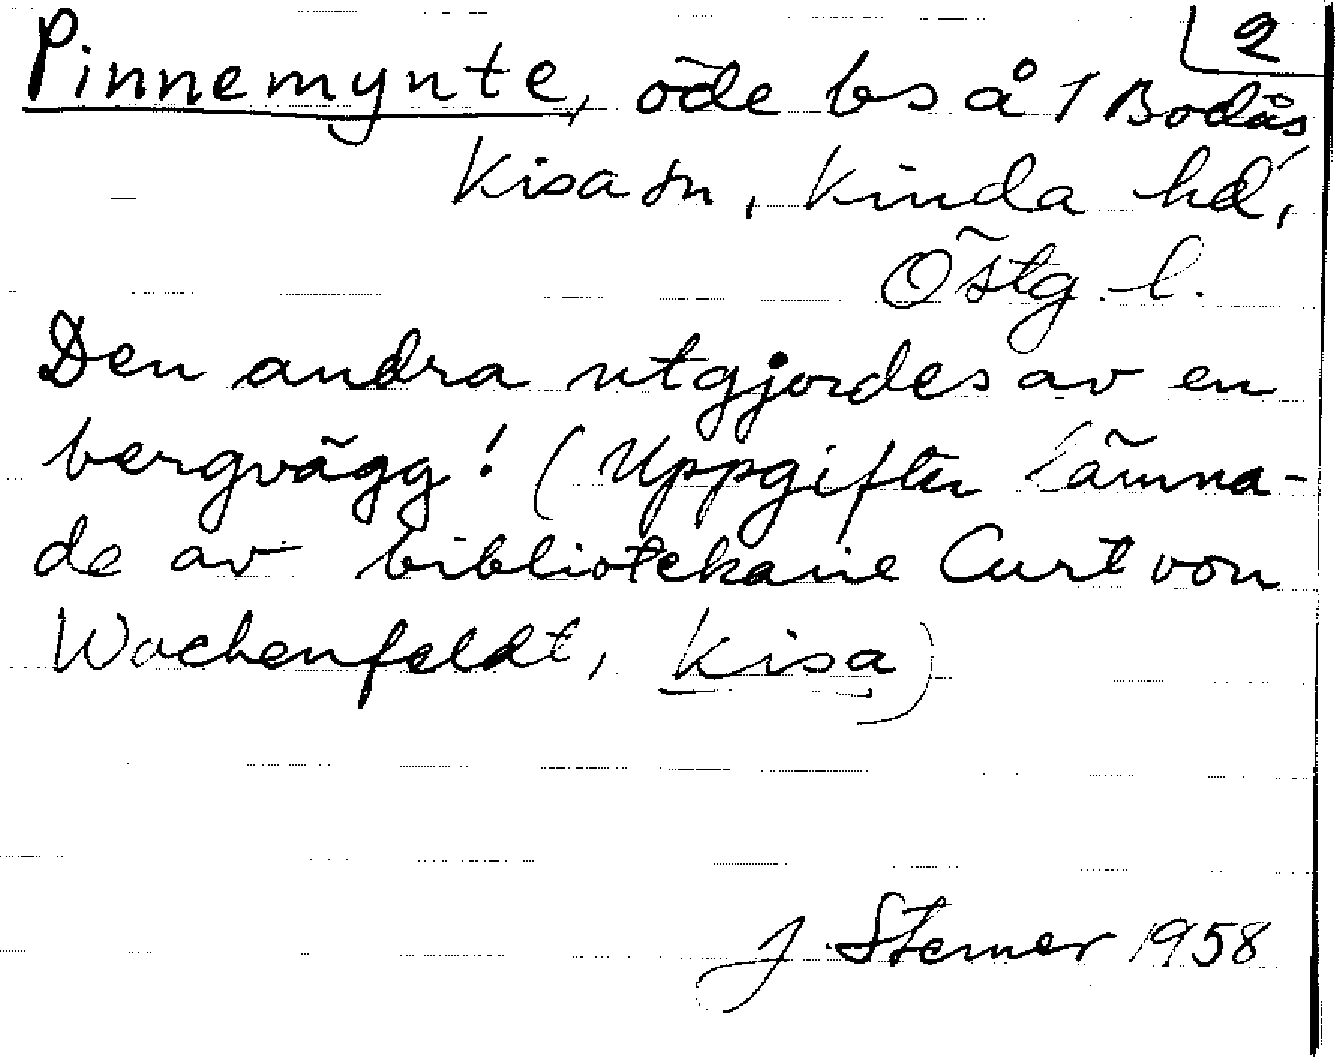 2
Pinnemynte, öde bs å 1 Bodås
Kisa sn, Kinda hd,
Östg. l.
Den andra utgjordes av en
bergvägg! (Uppgifter lämna-
de av bibliotekarie Curt von
Wachenfeldt, Kisa)
J. Sterner 1958